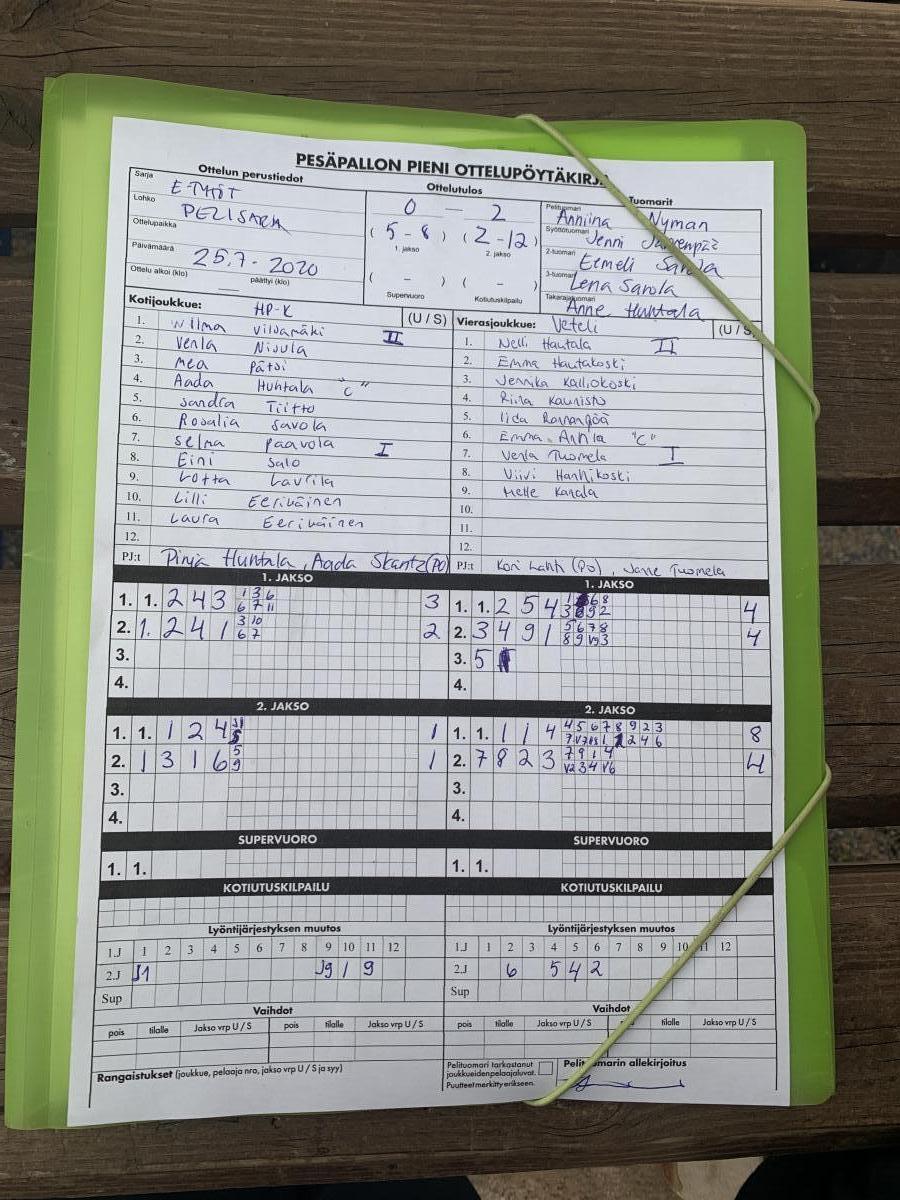 PESÄPALLON PIENI OTTELUPÖYTÄKIRJA
Ottelun perustiedot
Ottelutulos
Tuomarit
Sarja E-TYTÖT
Lohko PELISARJA
Ottelupaikka
Päivämäärä 25.7-2020
Ottelu alkoi (klo) päättyi (klo)
0 — 2
( 5 - 8 ) ( 2 - 12 )
1. jakso 2. jakso
( - ) ( - )
Supervuoro Kotiutuskilpailu
Pelituomari Anniina Nyman
Syöttötuomari Jenni
2-tuomari Eemeli Savola
3-tuomari Lena Savola
Takarajatuomari Anne Huhtala
Kotijoukkue: HP-K (U / S)
1. Wilma Viidamäki II
2. Venla Nisula
3. Mea Pätsi
4. Aada Huhtala "C"
5. Sandra Tiitto
6. Rosalia Savola
7. Selma Paavola I
8. Eini Salo
9. Lotta Laurila
10. Lilli Eeriväinen
11. Laura Eeriväinen
12.
PJ:t Pinja Huhtala, Aada Skantz (PO)
Vierasjoukkue: Veteli (U / S)
1. Nelli Hautala II
2. Emma Hautakoski
3. Jennika Kalliokoski
4. Riina Kaunisto
5. Iida
6. Emma Anttila "C"
7. Venla Tuomela I
8. Viivi Hanhikoski
9. Helle Kanala
10.
11.
12.
PJ:t Kori Lahti (PJ), Janne Tuomela
1. JAKSO
1. 1. 2 4 3 1 3 6 3
6 7 11
2. 1. 2 4 1 3 10 2
6 7
3.
4.
1. JAKSO
1. 1. 2 5 4 4
2. 3 4 9 1 5 6 7 8 4
8 9 V9 3
3. 5
4.
2. JAKSO
1. 1. 1 2 4 1
2. 1 3 1 6 5 1
9
3.
4.
2. JAKSO
1. 1. 1 1 4 4 5 6 7 8 9 2 3 8
2. 7 8 2 3 7 9 1 4 4
V2 3 4 V6
3.
4.
SUPERVUORO
1. 1.
SUPERVUORO
1. 1.
KOTIUTUSKILPAILU
KOTIUTUSKILPAILU
Lyöntijärjestyksen muutos
1.J 1 2 3 4 5 6 7 8 9 10 11 12
2.J J1 J9 1 9
Sup
Lyöntijärjestyksen muutos
1.J 1 2 3 4 5 6 7 8 9 10 11 12
2.J 6 5 4 2
Sup
Vaihdot
pois tilalle Jakso vrp U / S pois tilalle Jakso vrp U / S
Vaihdot
pois tilalle Jakso vrp U / S tilalle Jakso vrp U / S
Rangaistukset (joukkue, pelaaja nro, jakso vrp U / S ja syy)
Pelituomari tarkastanut
joukkueidenpelaajaluvat.
Puutteet merkitty erikseen.
Pelituomarin allekirjoitus